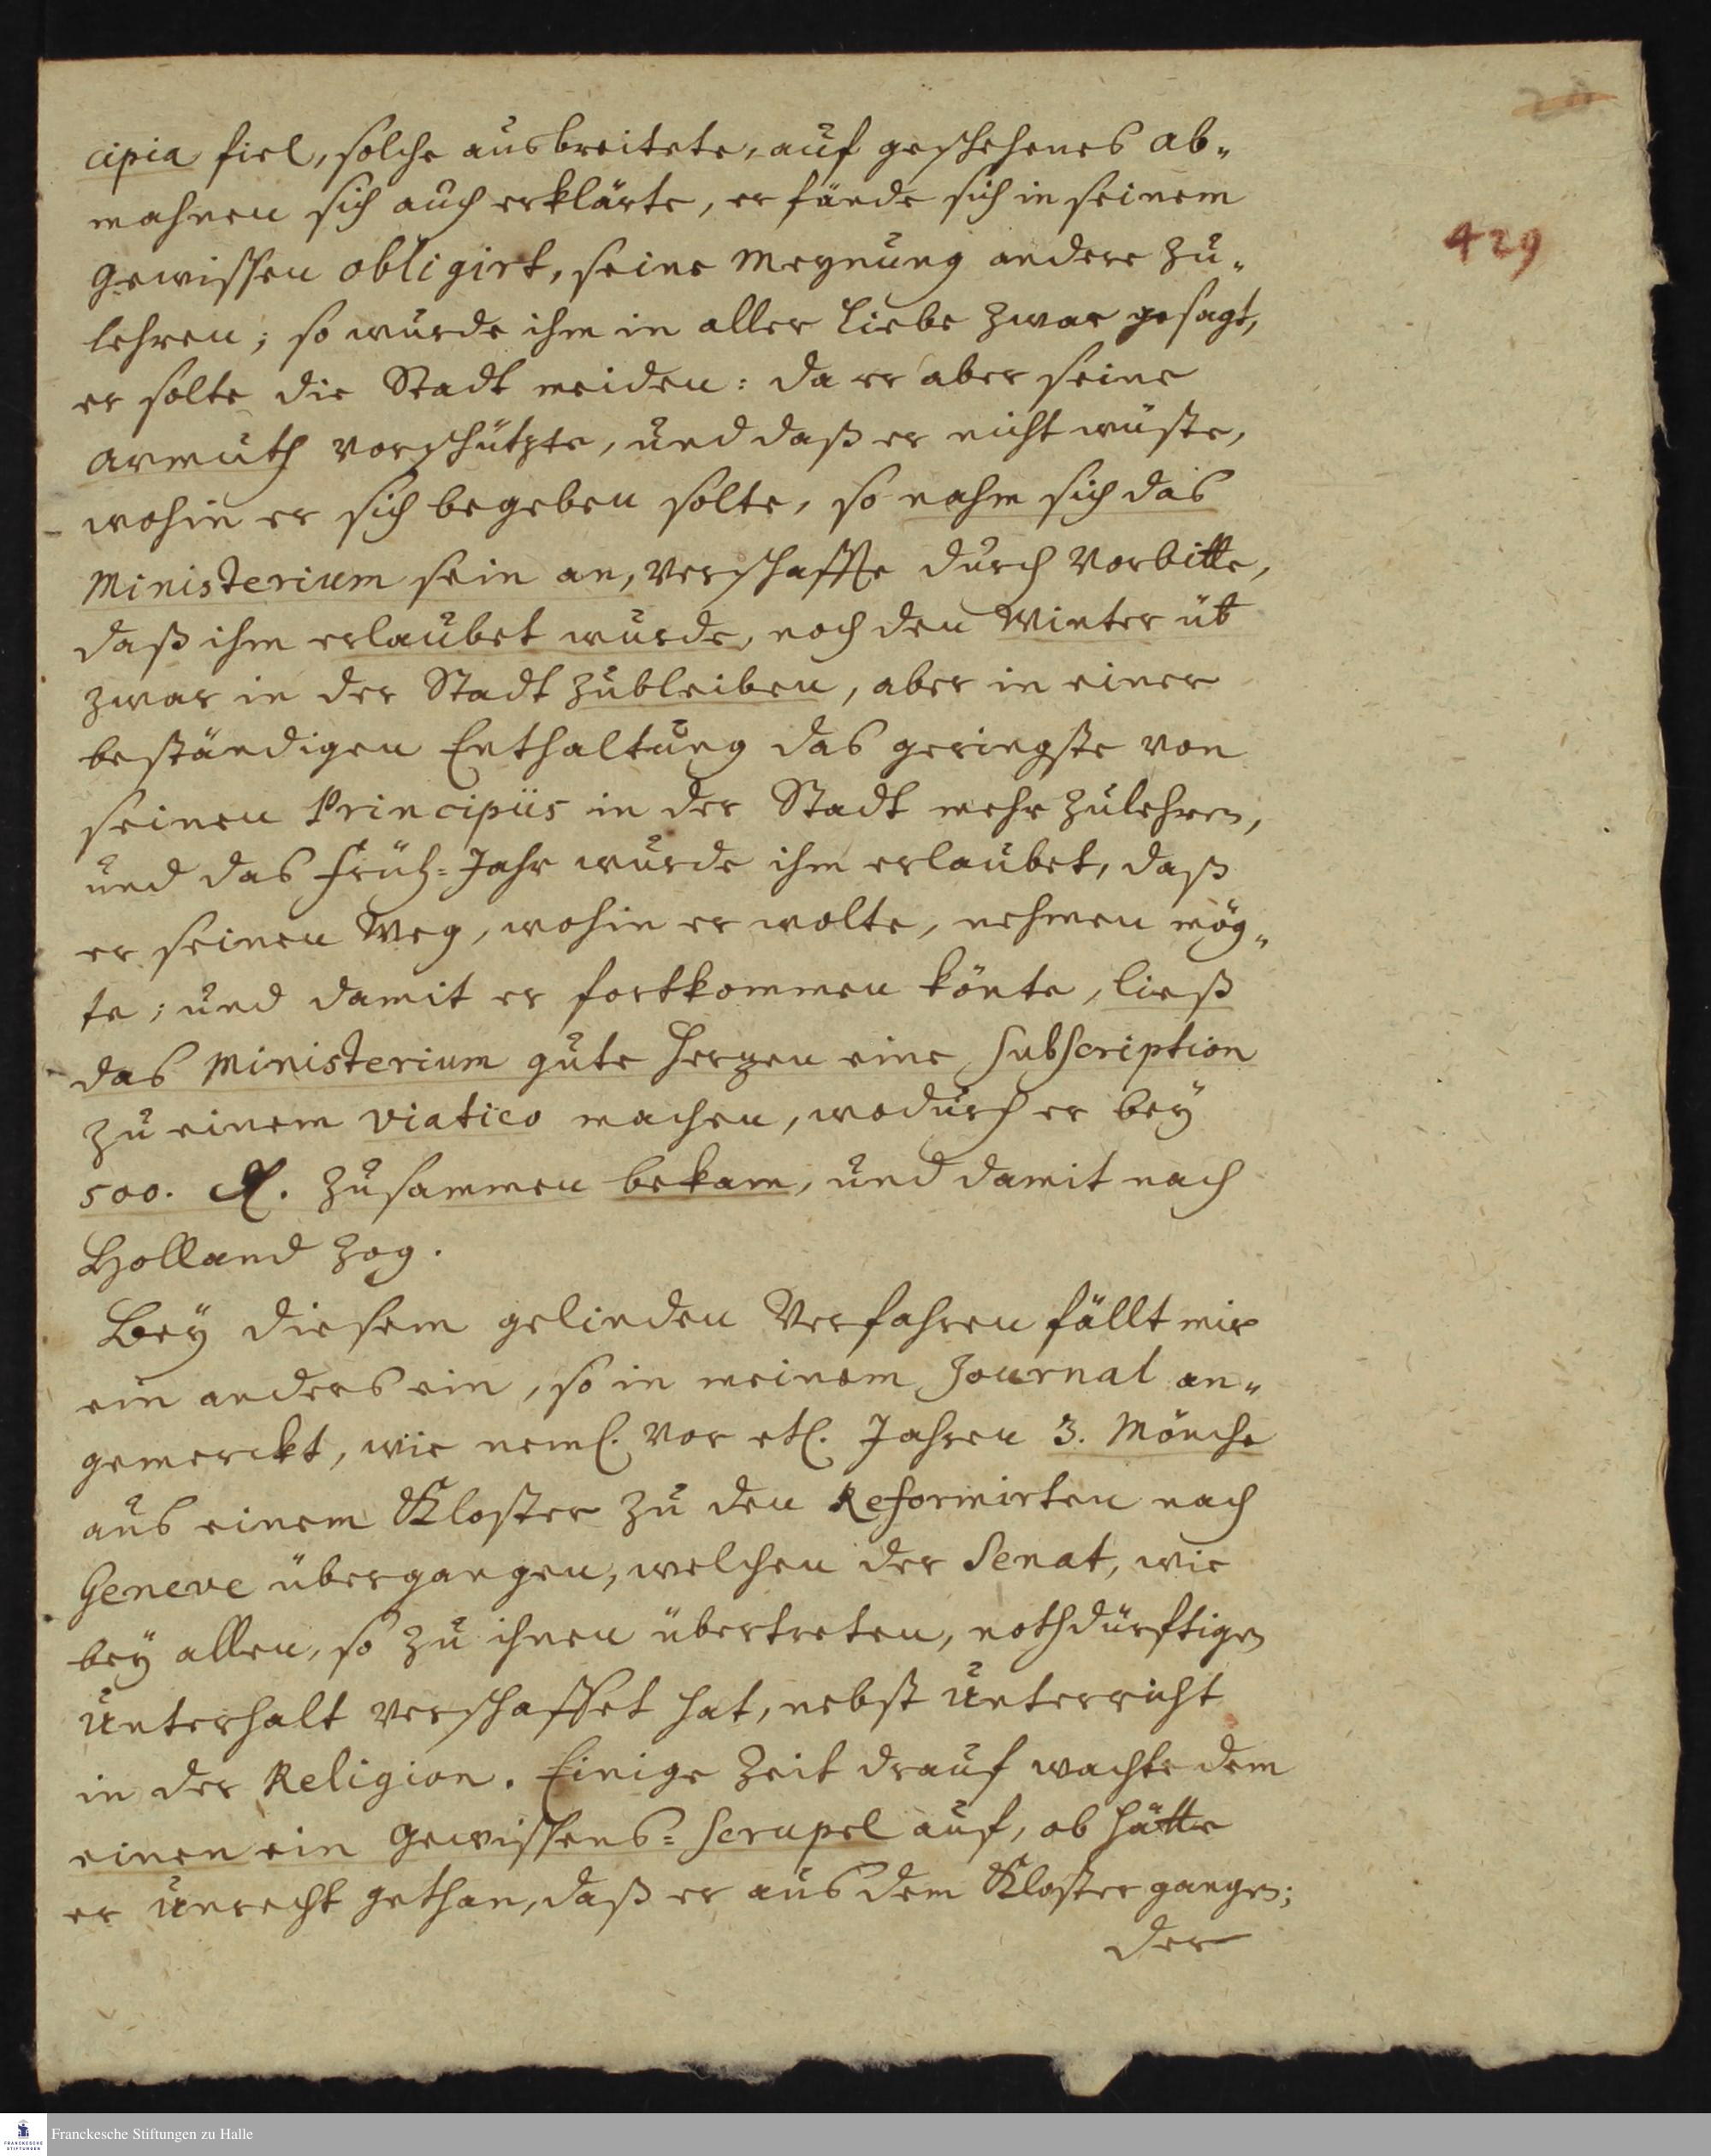 429
cipia fiel, solche ausbreitete, auf geschehenes ab„
mahnen sich auch erklärte, er fände sich in seinem
Gewissen obligirt, seine Meynung andere zu„
lehren; so wurde ihm in aller Liebe zwar gesagt,
er solte die Stadt meiden: da er aber seine
Armuth vorschützte, und daß er nicht wüste,
wohin er sich begeben solte, so nahm sich das
Ministerium sein an, verschaffte durch Vorbitte,
daß ihm erlaubet wurde, noch den Winter üb
zwar in der Stadt zubleiben, aber in einer
beständigen Enthaltung das geringste von
seinen Principiis in der Stadt mehr zulehren,
und das Früh=Jahr wurde ihm erlaubet, daß
er seinen Weg, wohin er wolte, nehmen mög„
te; und damit er fortkommen könte, ließ
das Ministerium gute Herzen eine Subscription
zu einem viatico machen, wodurch er bey
500. zusammen bekam, und damit nach
Holland zog.
Bey diesem gelinden Verfahren fällt mir
ein anders ein, so in meinem Journal an„
gemerckt, wie neml. vor etl. Jahren 3. Mönche
aus einem Kloster zu den Reformirten nach
Geneve übergangen, welchen der Senat, wie
bey allen, so zu ihnen übertreten, nothdürftigen
Unterhalt verschaffet hat, nebst Unterricht
in der Religion. Einige Zeit drauf wachte dem
einen ein Gewissens=Scrupel auf, ob hätte
er unrecht gethan, daß er aus dem Kloster gangen;
der
Franckesche Stiftungen zu Halle
FRANCKESCHE
STIFTUNGEN